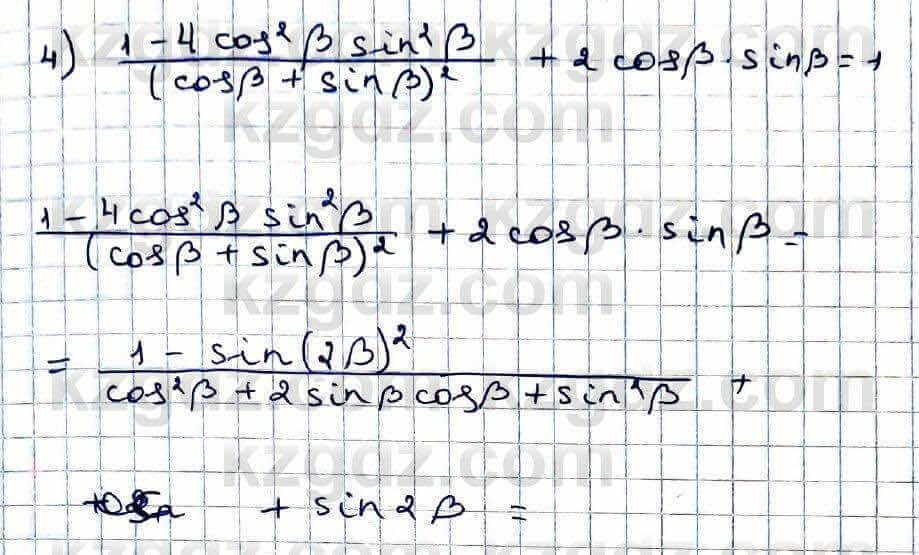 4) (1 - 4 cos² β sin² β) / (cos β + sin β)² + 2 cos β · sin β = 1
kzgdz.com
(1 - 4 cos² β sin² β) / (cos β + sin β)² + 2 cos β · sin β =
kzgdz.com
= (1 - sin (2β)²) / (cos² β + 2 sin β cos β + sin² β) +
kzgdz.com
+ sin 2 β =